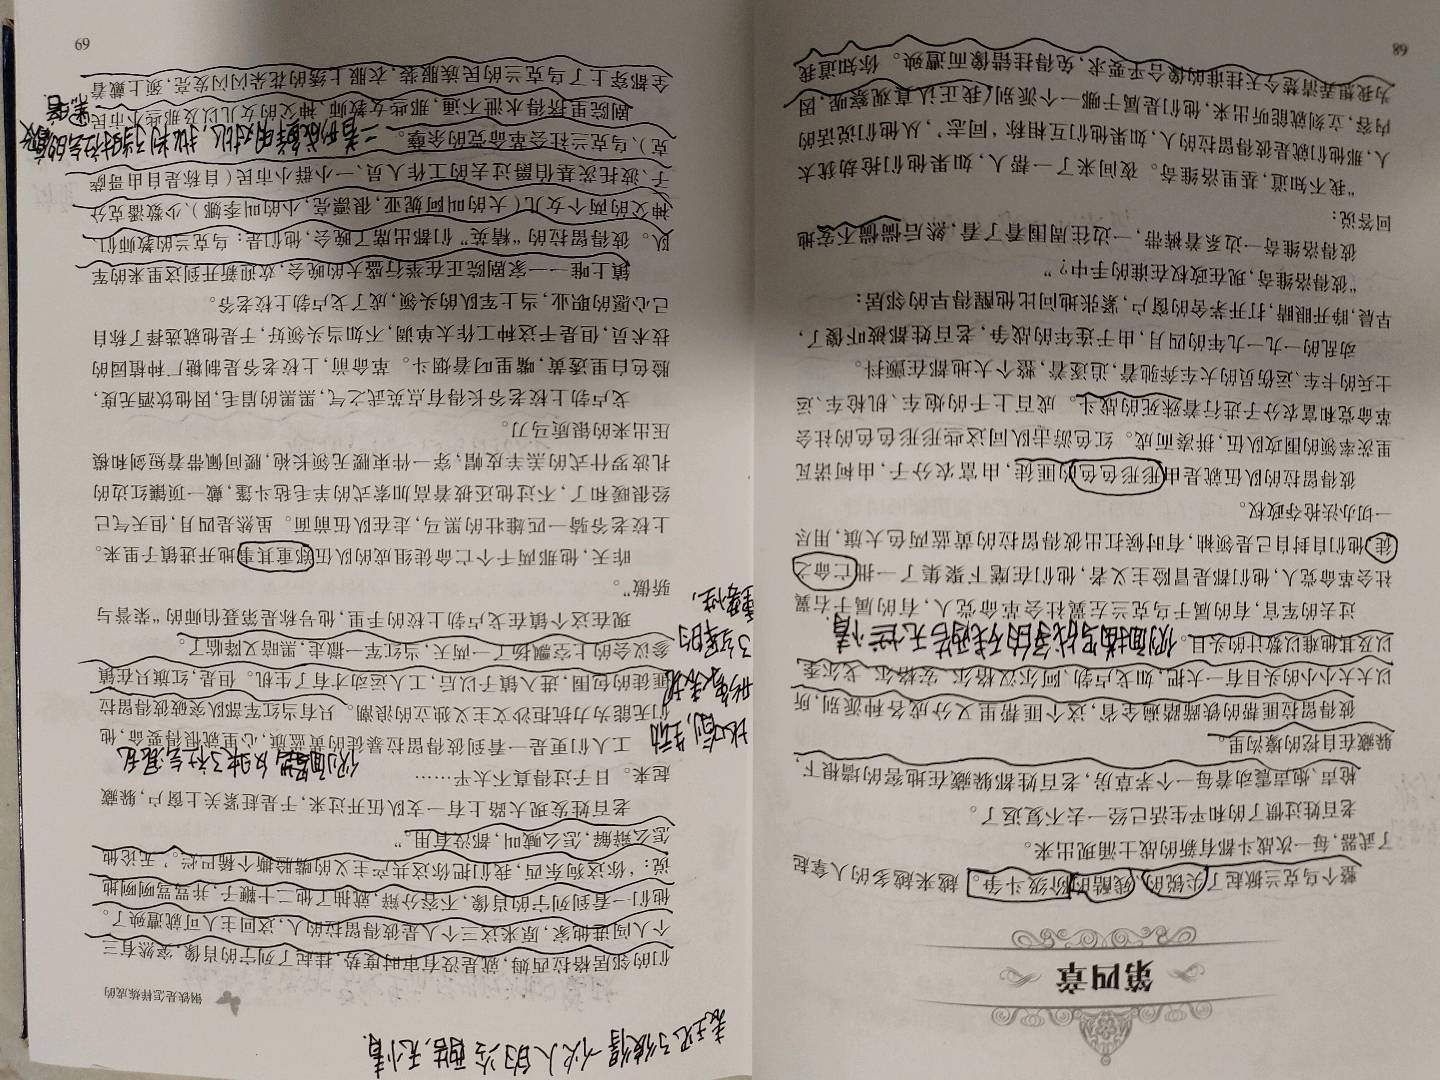 第四章
整个乌克兰掀起了尖锐的、残酷的阶级斗争。越来越多的人拿起
了武器,每一次战斗都有新的战士涌现出来。
老百姓过惯了的和平生活已经一去不复返了。
枪声、炮声震动着每一个茅草房,老百姓都躲藏在地窖的墙根下,
躲藏在自挖的壕沟里。
彼得留拉匪帮的铁蹄踏遍全省,这个匪帮里又分成各种派别,所
以大大小小的头目有一大把,如戈卢勃、阿尔汉格尔、安格尔、戈尔季
以及其他难以数计的头目。
侧面描写战争的残酷无情
过去的军官,有的属于乌克兰左翼社会革命党人,有的属于右翼
社会革命党人,他们都是冒险主义者,他们在麾下聚集了一批亡命之
徒,他们自封自己是领袖,有时候扛出彼得留拉的黄蓝两色大旗,用尽
一切办法抢夺政权。
彼得留拉的队伍就是由形形色色的匪徒,由富农分子,由柯诺瓦
里次率领的围攻队伍,拼凑而成。红色游击队同这些形形色色的社会
革命党和富农分子进行着殊死的战斗。成百上千的炮车、机枪车、运
士兵的卡车、运伤员的大车奔驰着,追逐着,整个大地都在颤抖。
动乱的一九一九年的四月,由于连年的战争,老百姓都被吓傻了,
早晨,睁开眼睛,打开茅舍的窗户,紧张地问比他醒得早的邻居:
“彼得洛维奇,现在政权在谁的手中?”
彼得洛维奇一边系着裤带,一边往周围看了看,然后惴惴不安地
回答说:
“我不知道,基里洛维奇。夜间来了一帮人,如果他们抢劫犹太
人,那他们就是彼得留拉的人,如果他们互相称‘同志’,从他们说话的
内容,立刻就能听出来,他们是属于哪一个派别(我正认真观察呢,因
为我想弄清楚今天挂谁的像合乎要求,免得挂错像而遭殃。你知道我
68
表现了彼得一伙人的冷酷,无情
钢铁是怎样炼成的
们的邻居格拉西姆,就是没有审时度势,挂起了列宁的肖像,突然有三
个人闯进他家,原来这三个人是彼得留拉的人,这回主人可就遭殃了。
他们一看到列宁的肖像,不容分辩,就抽了他二十鞭子,并骂骂咧咧地
说:‘你这狗东西,我们把你这共产主义的嘴脸撕个稀巴烂。’无论他
怎么辩解,怎么喊叫,都没有用。”
老百姓发现大路上有一支队伍开过来,于是赶紧关上窗户,躲藏
起来。日子过得真不太平……
侧面反映了社会混乱
工人们更是一看到彼得留拉暴徒的黄蓝旗,心里就恨得要命,他
们无能为力抗拒沙文主义独立的浪潮。只有当红军部队突破彼得留拉
匪徒的包围,进入镇子以后,工人运动才有了生机。但是,红旗只在镇
参议会的上空飘扬了一两天,当红军一撤走,黑暗又降临了。
比喻,生动
形象表现
了红军的
重要性,
现在这个镇在戈卢勃上校的手里,他号称是第聂伯师的“荣誉与
骄傲”。
昨天,他那两千个亡命徒组成的队伍郑重其事地开进镇子里来。
上校老爷骑一匹雄壮的黑马,走在队伍前面。虽然是四月,但天气已
经很暖和了,不过他还披着高加索式的羊毛毡斗篷,戴一顶镶红边的
扎波罗什式的羔羊皮帽,穿一件束腰无领长袍,腰间佩带着短剑和模
压出来的银质马刀。
戈卢勃上校老爷长得有点英武之气,黑黑的眉毛,因他饮酒无度,
脸色白里透黄,嘴里叼着烟斗。革命前,上校老爷是制糖厂种植园的
技术员,但是干这种工作太单调,不如当头领好,于是他就选择了称自
己心愿的职业,当上军队的头领,成了戈卢勃上校老爷。
镇上唯一一家剧院正在举行盛大的晚会,欢迎新开到这里来的军
队。彼得留拉的“精英”们都出席了晚会,他们是:乌克兰的教师们、
神父的两个女儿(大的叫阿妮亚,很漂亮,小的叫季娜)、少数潘克分
子、波托茨基伯爵过去的工作人员、一小群小市民(自称是自由哥萨
克)、乌克兰社会革命党的余孽。
二者形成鲜明对比,批判了当时社会的腐败
黑暗
剧院里挤得水泄不通,那些女教师、神父的女儿以及那些小市民
全都穿上了乌克兰的民族服装,衣服上绣的花朵闪闪发亮,颈上戴着
69